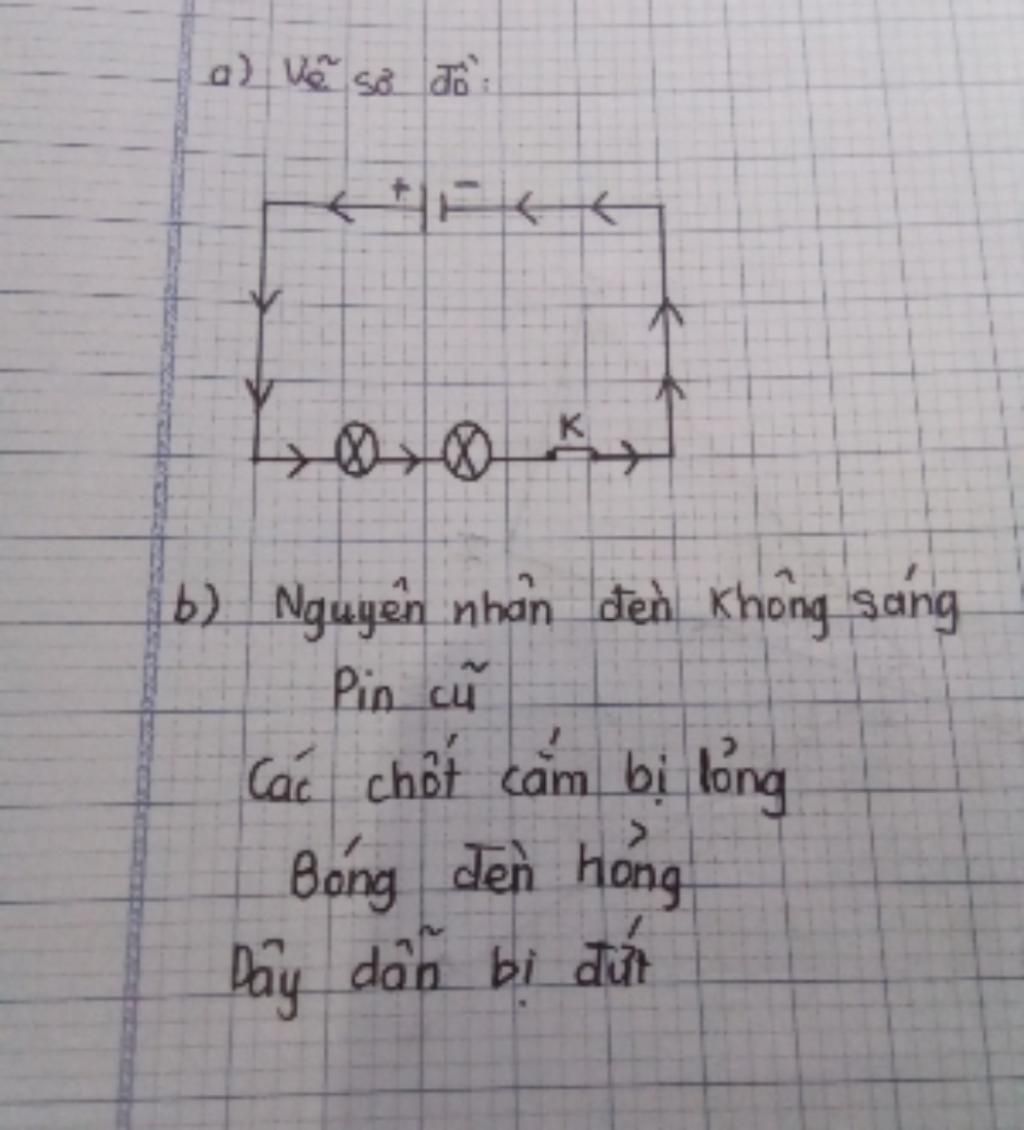 a) Vẽ sơ đồ:
+ -
K
b) Nguyên nhân đèn không sáng
Pin cũ
Các chốt cắm bị lỏng
Bóng đèn hỏng
Dây dẫn bị đứt